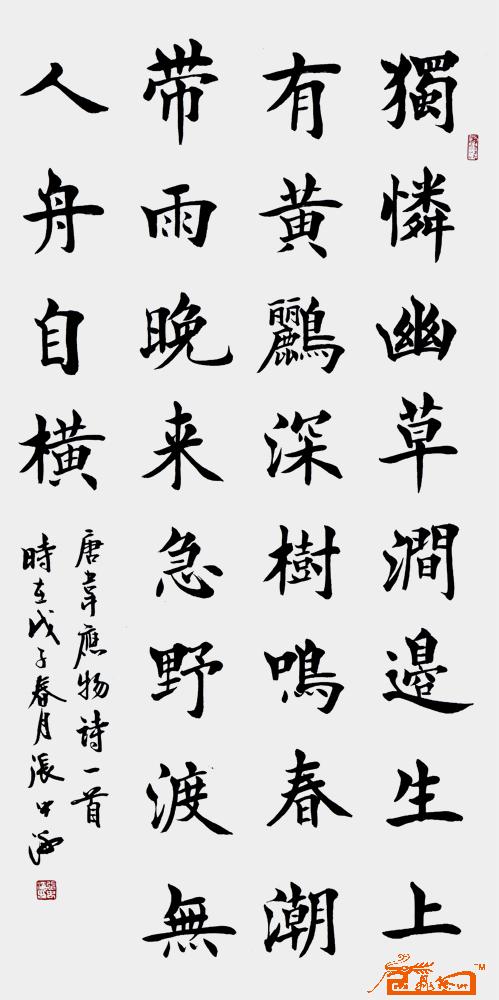 獨憐幽草澗邊生上
有黄鸝深樹鳴春潮
带雨晚来急野渡無
人舟自横
唐韋應物詩一首
時在戊子春月張中